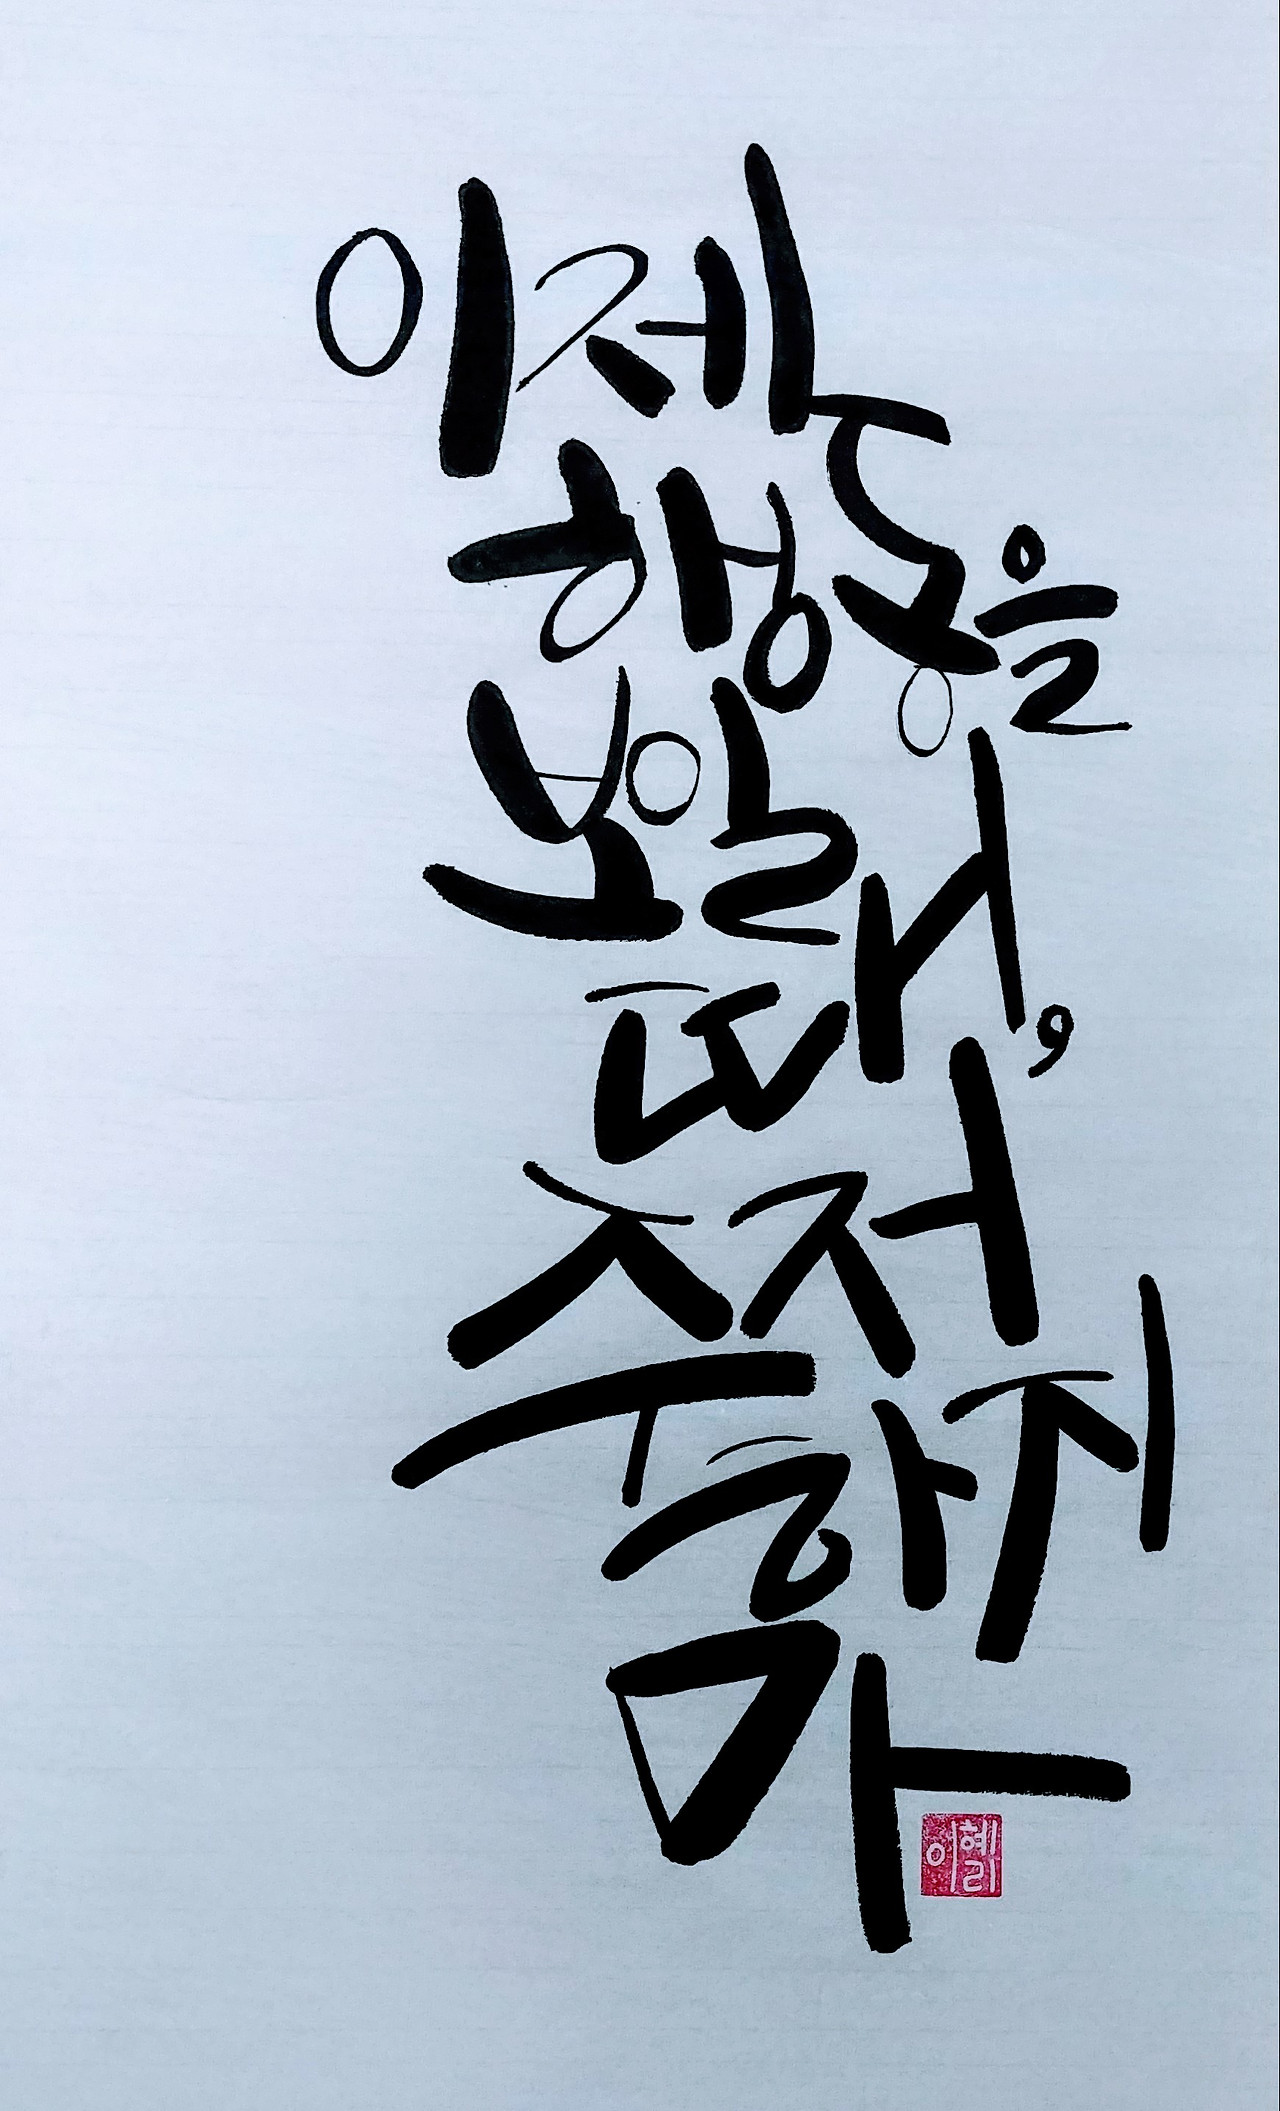 이제
행동을
보일
때,
주저
하지
마
이혜리